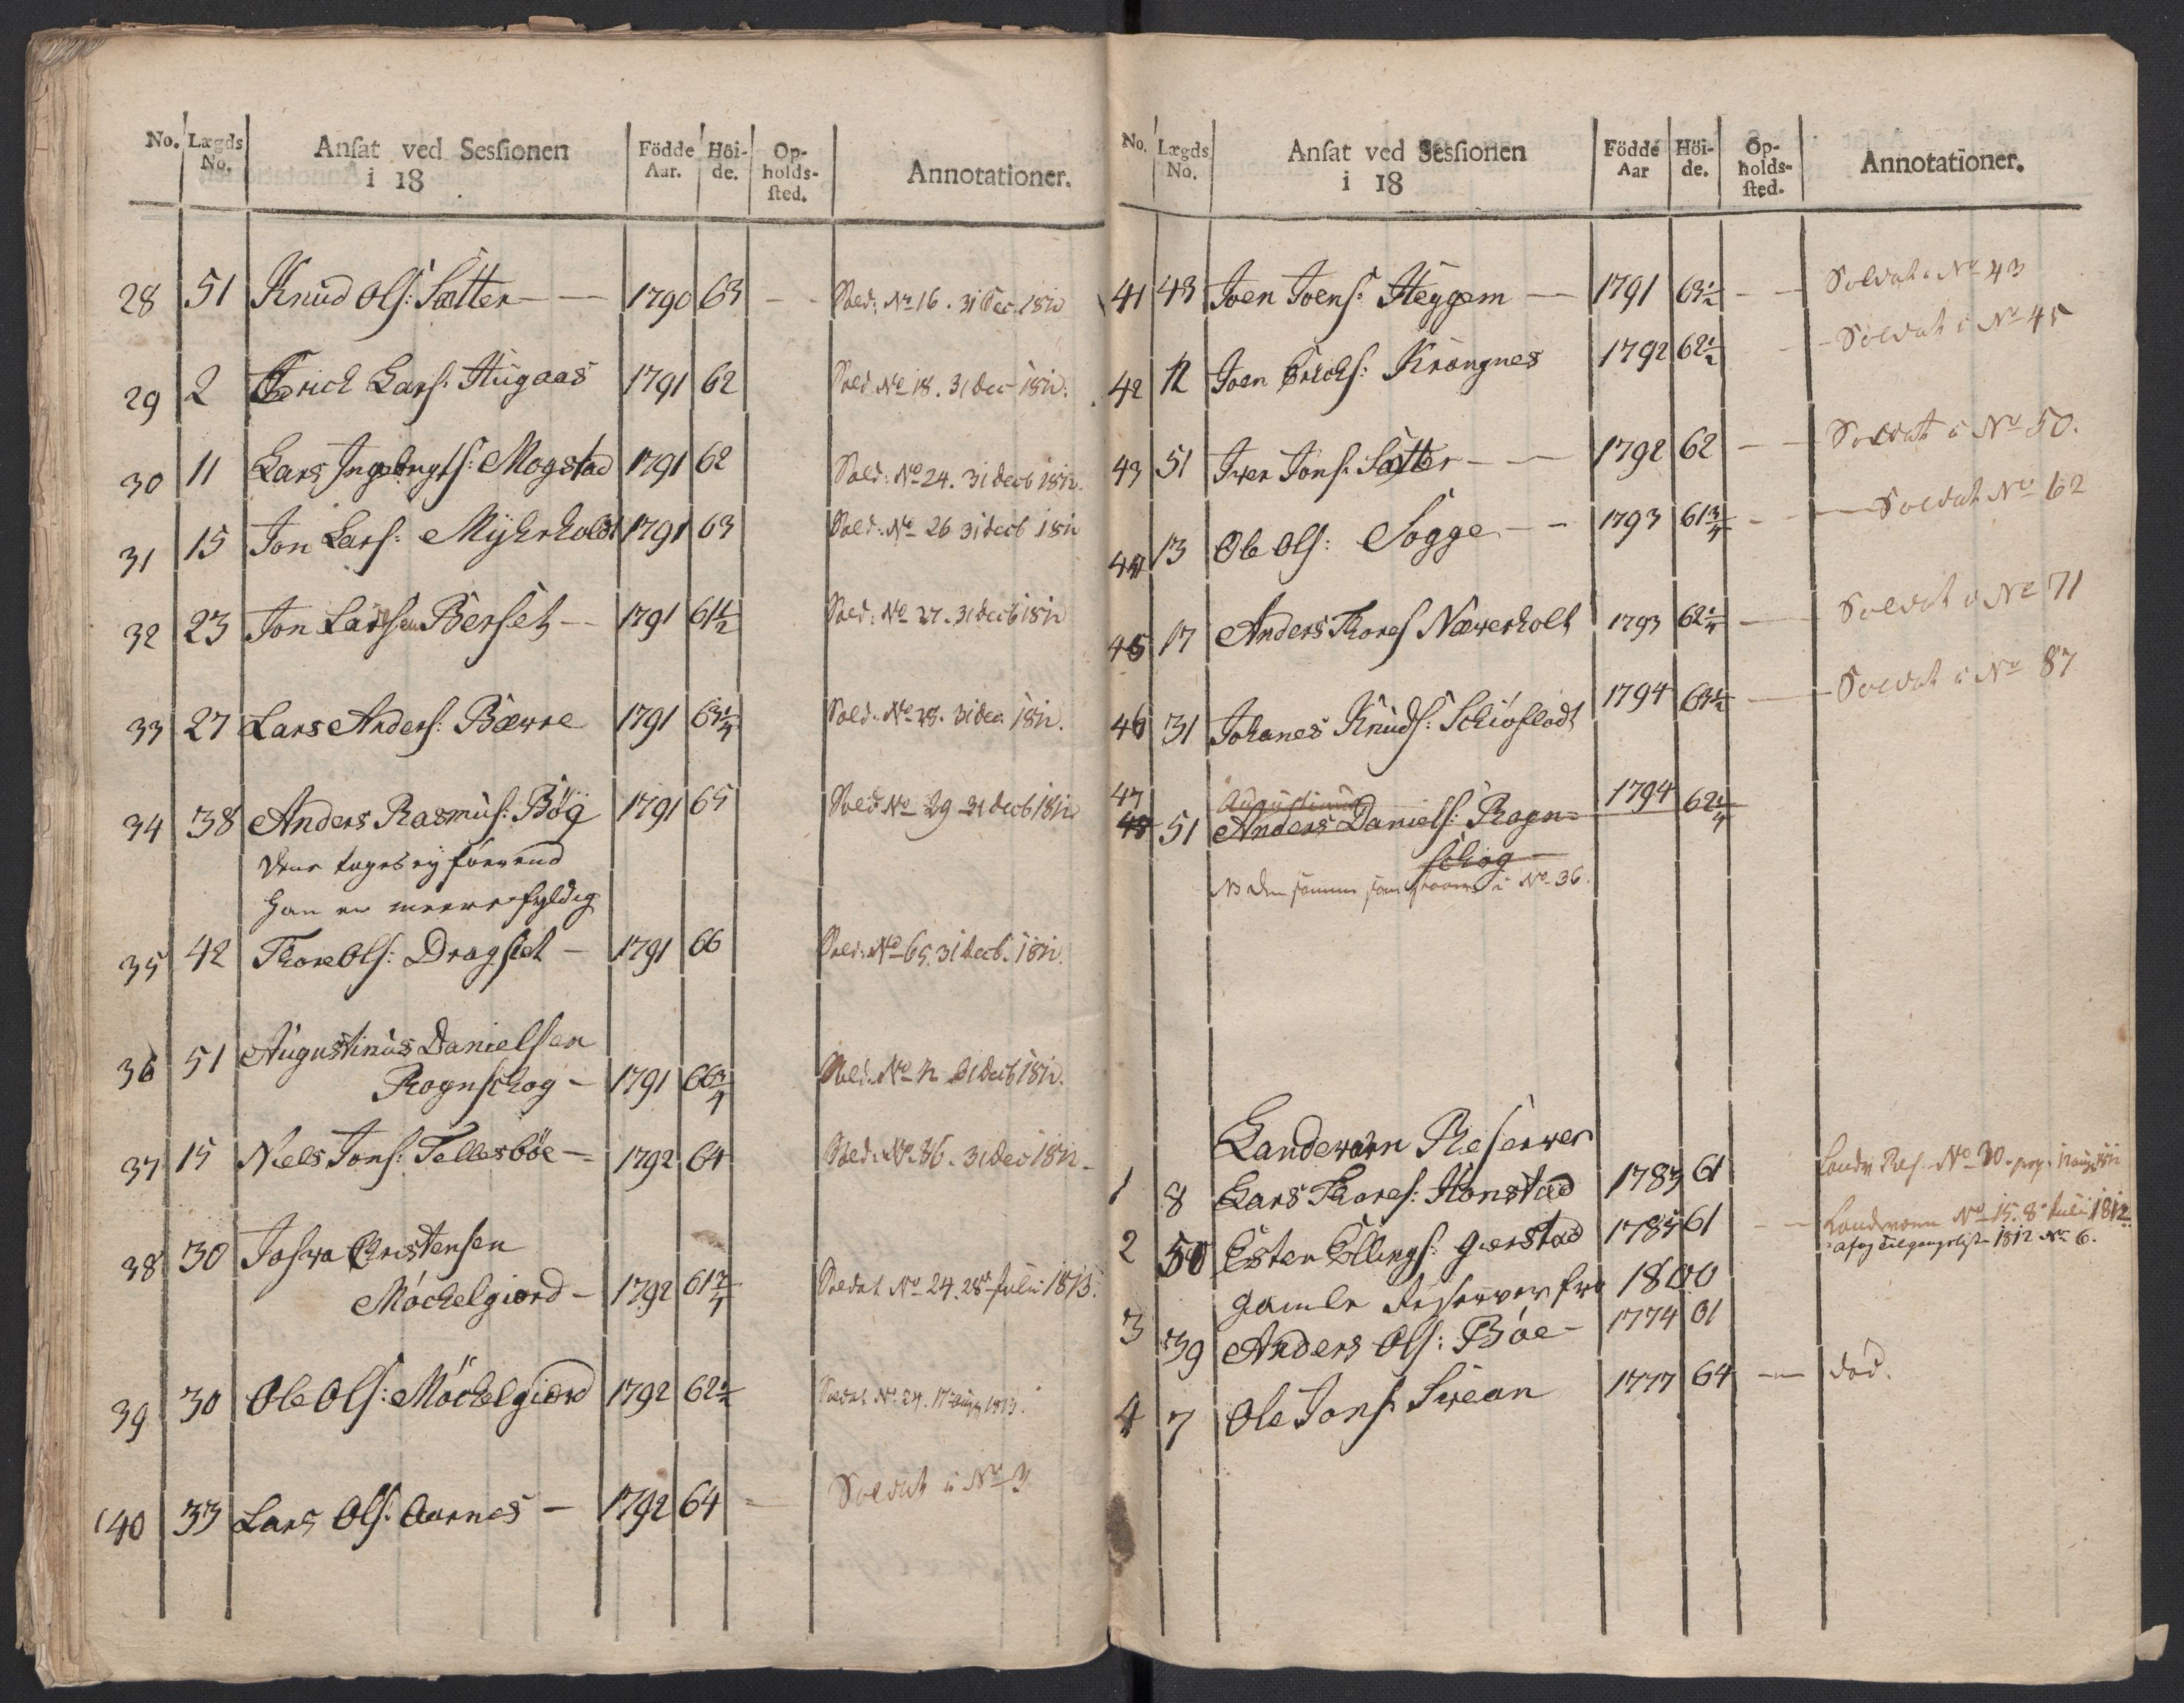 No. Lægds No. Ansat ved Sessionen i 18 Födde Aar. Höi-de. Op-holds-sted. Annotationer.
28 51 Knud Ols: Sætter — — 1790 63 - - Sold: No 16. 31 Dec. 1812
29 2 Erich Lars: Hugaas 1791 62 Sold. No 18. 31 Dec 1812.
30 11 Lars Ingebrigts: Mogstad 1791 62 Sold: No 24. 31 decb 1812.
31 15 Jon Lars: Myhrholdt 1791 63 Sold: No 26 31 decb 1812
32 23 Jon Larssen Berset — 1791 61½ Sold: No 27. 31 decb 1812
33 27 Lars Anders: Bæwre 1791 63¼ Sold: No 28. 31 dec. 1812.
34 38 Anders Rasmus: Bög 1791 65 Sold No 29 31 decb 1812
Dene tages ey förrend
han er meere fyldig
35 42 Thore Ols: Dragset — 1791 66 Sold: No 65. 31 decb. 1812.
36 51 Augustinus Danielsen
Rognschog — 1791 66¾ Sold: No 12 31 decb 1812.
37 15 Niels Jons: Tellesböe — 1792 64 Sold: No 86. 31 Dec 1812 -
38 30 Joswa Christensen
Möchelgierd — 1792 61¾ Soldat No 24. 28de Julii 1813.
39 30 Ole Ols: Möchelgierd 1792 62½ Soldat No 34. 17 1813.
40 33 Lars Ols: Aarnes — 1792 64 — Soldat i No 3
No. Lægds No. Ansat ved Sessionen i 18 Födde Aar Höi-de. Op-holds-sted. Annotationer.
41 43 Joen Joens: Heggem — 1791 63½ - - Soldat i No 43
42 12 Joen Erichs: Krongnes 1792 62½ - - Soldat i No 45
43 51 Iver Jons: Sætter — — 1792 62 — — Soldat i No 50.
44 13 Ole Ols: Sogge — — 1793 61¾ - - Soldat No 62
45 17 Anders Thores Næwerholt 1793 62¼ — — Soldat i No 71
46 31 Johanes Knuds: Schiöflodt 1794 63½ — — Soldat i No 87
47 Augustinus
48 51 Anders Daniels: Rogn= 1794 62¼
schog
NB den samme som i No 36.
Landeværn Reserver
1 8 Lars Thores: Honstad 1783 61 Landv Res. No 30
2 50 Esten Ellings: Gierstad 1785 61 - - Landværn No 15. 8de Julii 1812
1812 No 6.
gamle Reserver fra 1800
3 39 Anders Ols: Böe — 1774 61
4 7 Ole Jons: Swean 1777 64 — död.